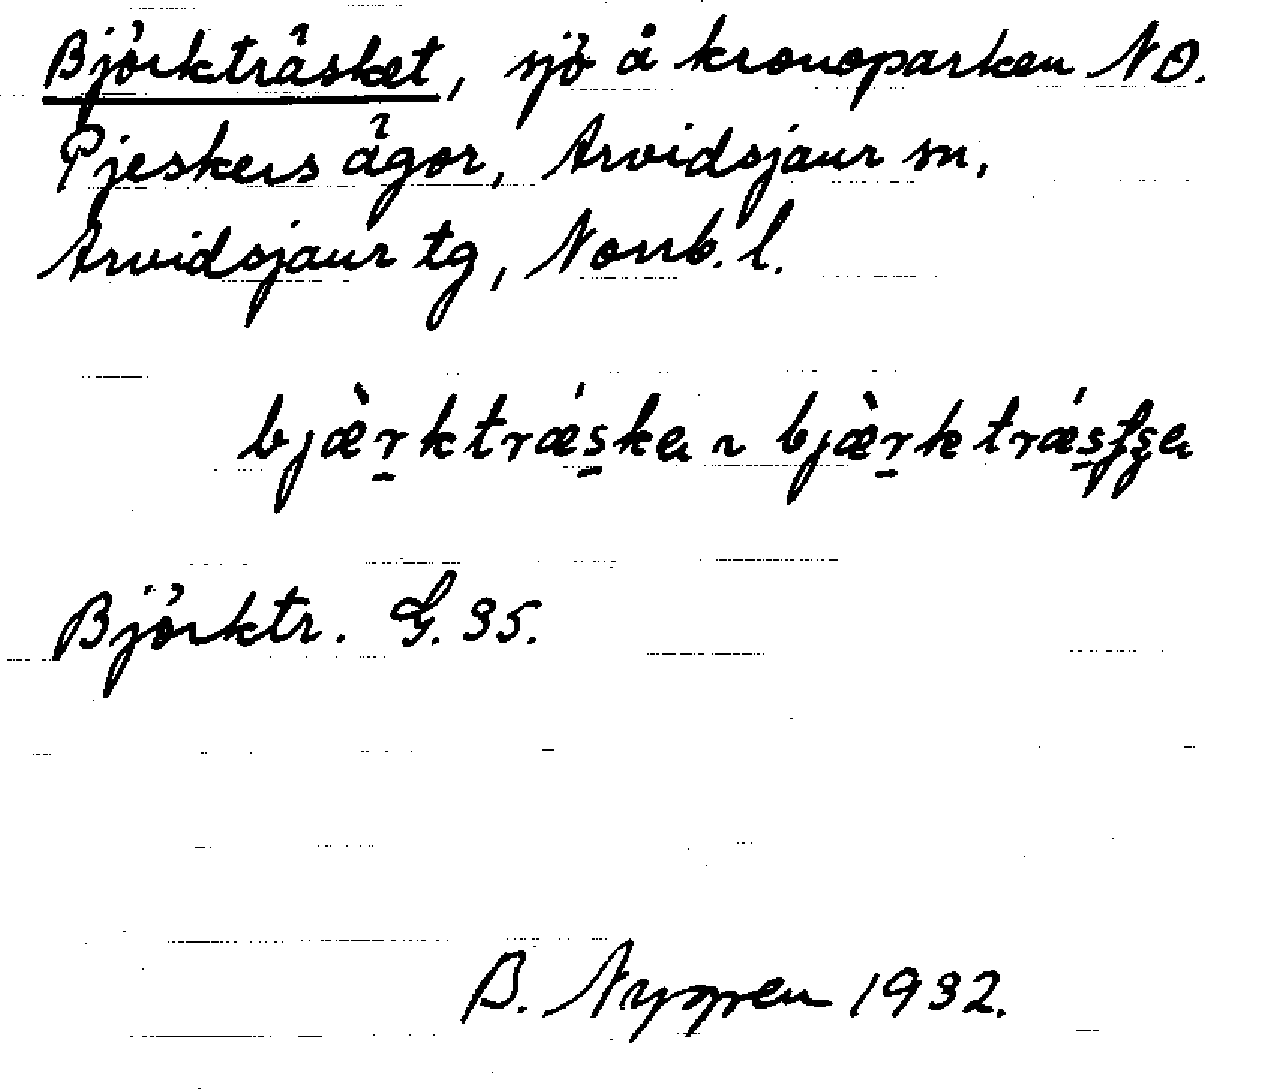 Björkträsket, sjö å kronoparken NO.
Pjeskers ägor, Arvidsjaur sn,
Arvidsjaur tg, Norrb. l.
bjæ̀r̠ktrǽs̠ka ~ bjæ̀r̠ktrǽs̠ʃʂa
Björktr. G. 35.
B. Nygren 1932.